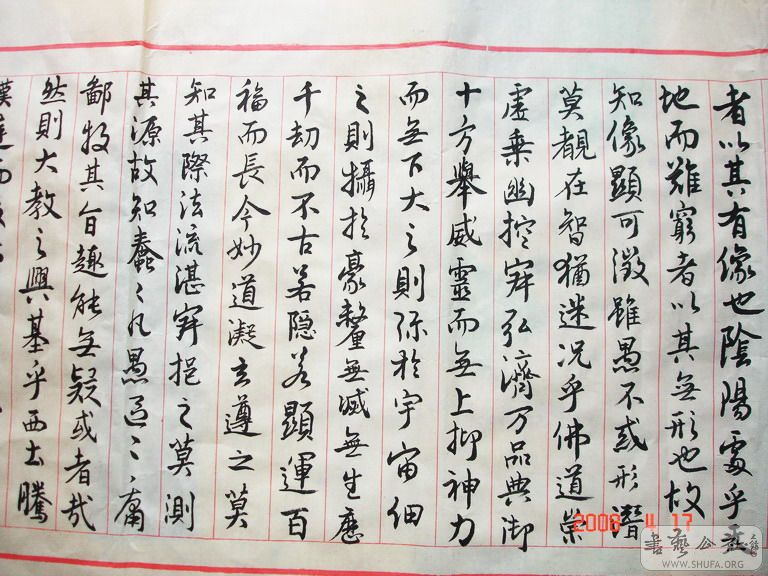 者以其有像也陰陽處乎天
地而難窮者以其無形也故
知像顯可徵雖愚不惑形潛
莫覩在智猶迷況乎佛道崇
虛乘幽控寂弘濟万品典御
十方舉威靈而無上抑神力
而無下大之則弥於宇宙細
之則攝於豪釐無滅無生歷
千劫而不古若隱若顯運百
福而長今妙道凝玄遵之莫
知其際法流湛寂挹之莫測
其源故知蠢〻凡愚區〻庸
鄙投其旨趣能無疑或者哉
然則大教之興基乎西土騰
漢庭而
2008 4 17
書藝公社
WWW.SHUFA.ORG